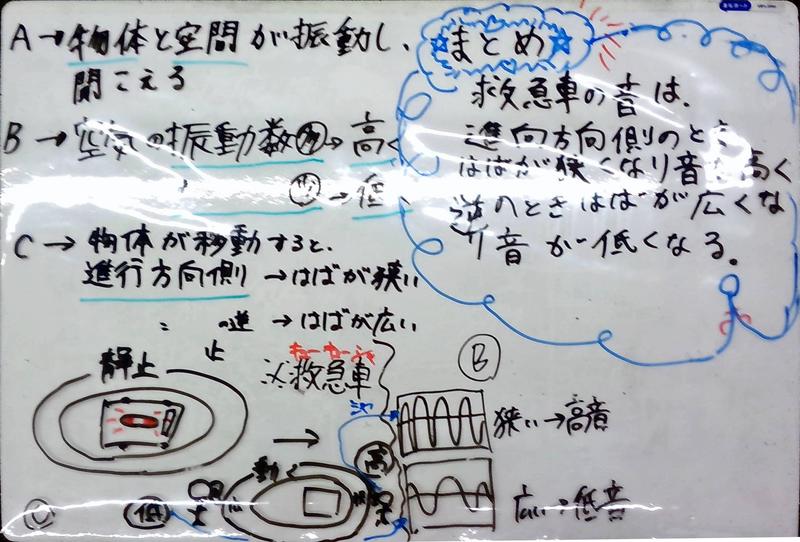 A→物体と空間が振動し、
聞こえる
B→空気の振動数多→高く
〃 少→低く
C→物体が移動すると、
進行方向側→はばが狭い
〃 の逆→はばが広い
まとめ
救急車の音は、
進向方向側のとき
はばが狭くなり音が高く
逆のときはばが広くな
り音が低くなる。
静止
止
※救急車
キューキューシャ
動く
高
低
B
狭い→高音
広い:低音